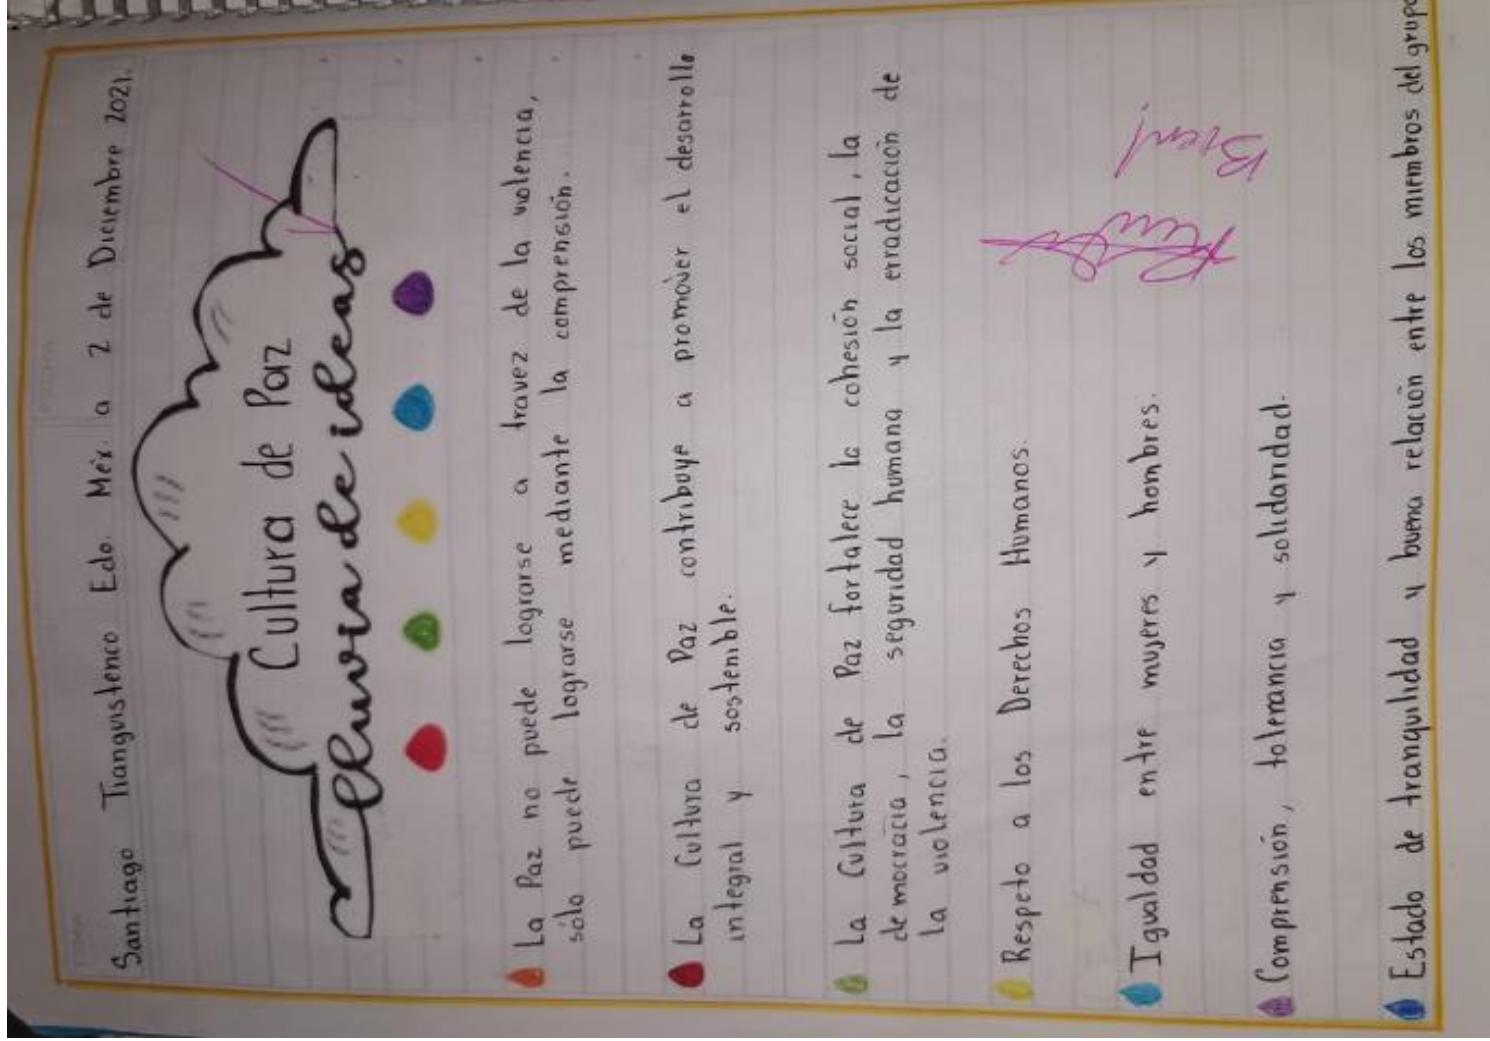 Santiago Tianguistenco Edo. Méx. a 2 de Diciembre 2021.
Cultura de Paz
lluvia de ideas
La Paz no puede lograrse a travez de la violencia,
sólo puede lograrse mediante la comprensión.
La Cultura de Paz contribuye a promover el desarrollo
integral y sostenible.
La Cultura de Paz fortalece la cohesión social, la
democracia, la seguridad humana y la erradicación de
la violencia.
Respeto a los Derechos Humanos.
Igualdad entre mujeres y hombres.
Bien!
Comprensión, tolerancia y solidaridad.
Estado de tranquilidad y buena relación entre los miembros del grupo